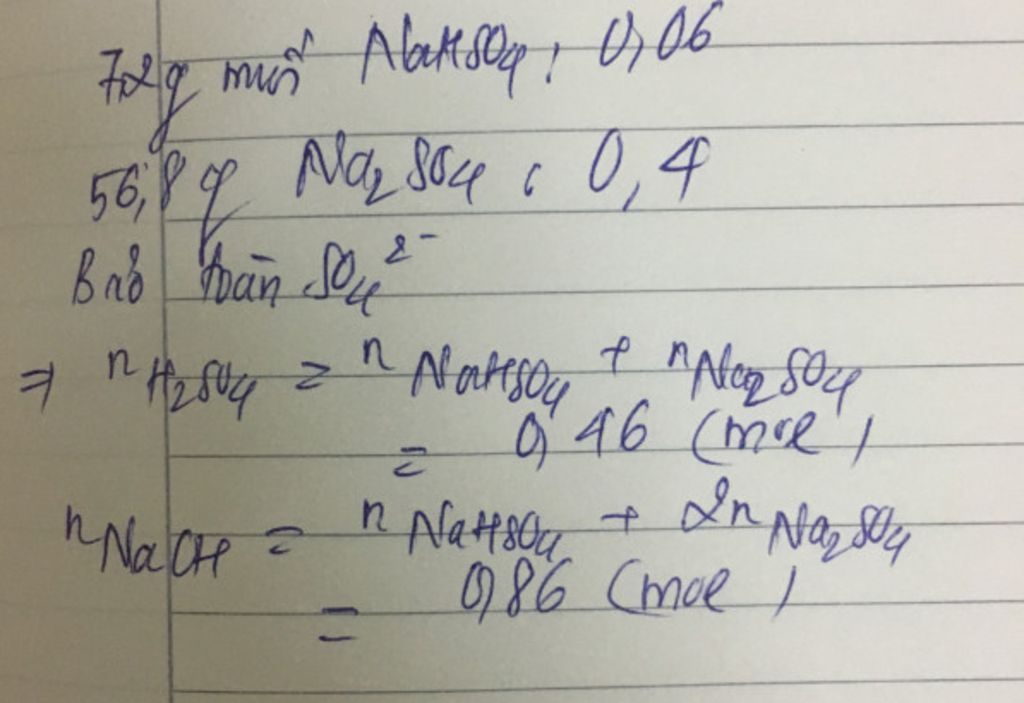 7,2g muối NaHSO4 : 0,06
56,8g Na2SO4 : 0,4
Bảo toàn SO4^2-
=> nH2SO4 = nNaHSO4 + nNa2SO4
= 0,46 (mol)
nNaOH = nNaHSO4 + 2nNa2SO4
= 0,86 (mol)